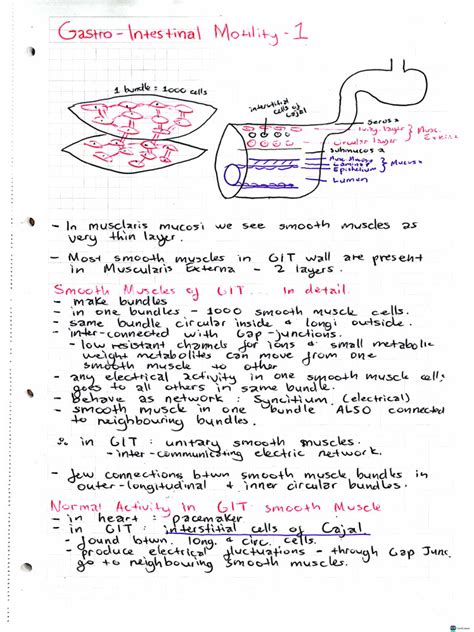 Gastro-Intestinal Motility - 1
1 bundle = 1000 cells
interstitial
cells of
Cajal
Serosa
long. layer } Musc.
Circular layer Externa
Submucosa
Musc. Mucosa
Lamina } Mucosa
Epithelium
Lumen
- In musclaris mucosi we see smooth muscles as
very thin layer.
- Most smooth muscles in GIT wall are present
in Muscularis Externa - 2 layers.
Smooth Muscles of GIT... In detail
- make bundles
- in one bundles - 1000 smooth muscle cells.
- same bundle circular inside & longi outside.
- inter-connected with Gap-junctions.
- low resistant channels for ions & small metabolic
weight metabolites can move from one
smooth muscle to other
- any electrical activity in one smooth muscle cells
goes to all others in same bundle.
- Behave as network: Syncitium (electrical)
- smooth muscle in one bundle ALSO connected
to neighbouring bundles.
So in GIT: unitary smooth muscles.
- inter-communicating electric network.
- few connections btwn smooth muscle bundles in
outer-longitudinal & inner circular bundles.
Normal Activity In GIT smooth Muscle
- in heart: pacemaker
- in GIT: interstitial cells of Cajal
- found btwn. long. & circ. cells.
- produce electrical fluctuations - through Gap Junc.
go to neighbouring smooth muscles.